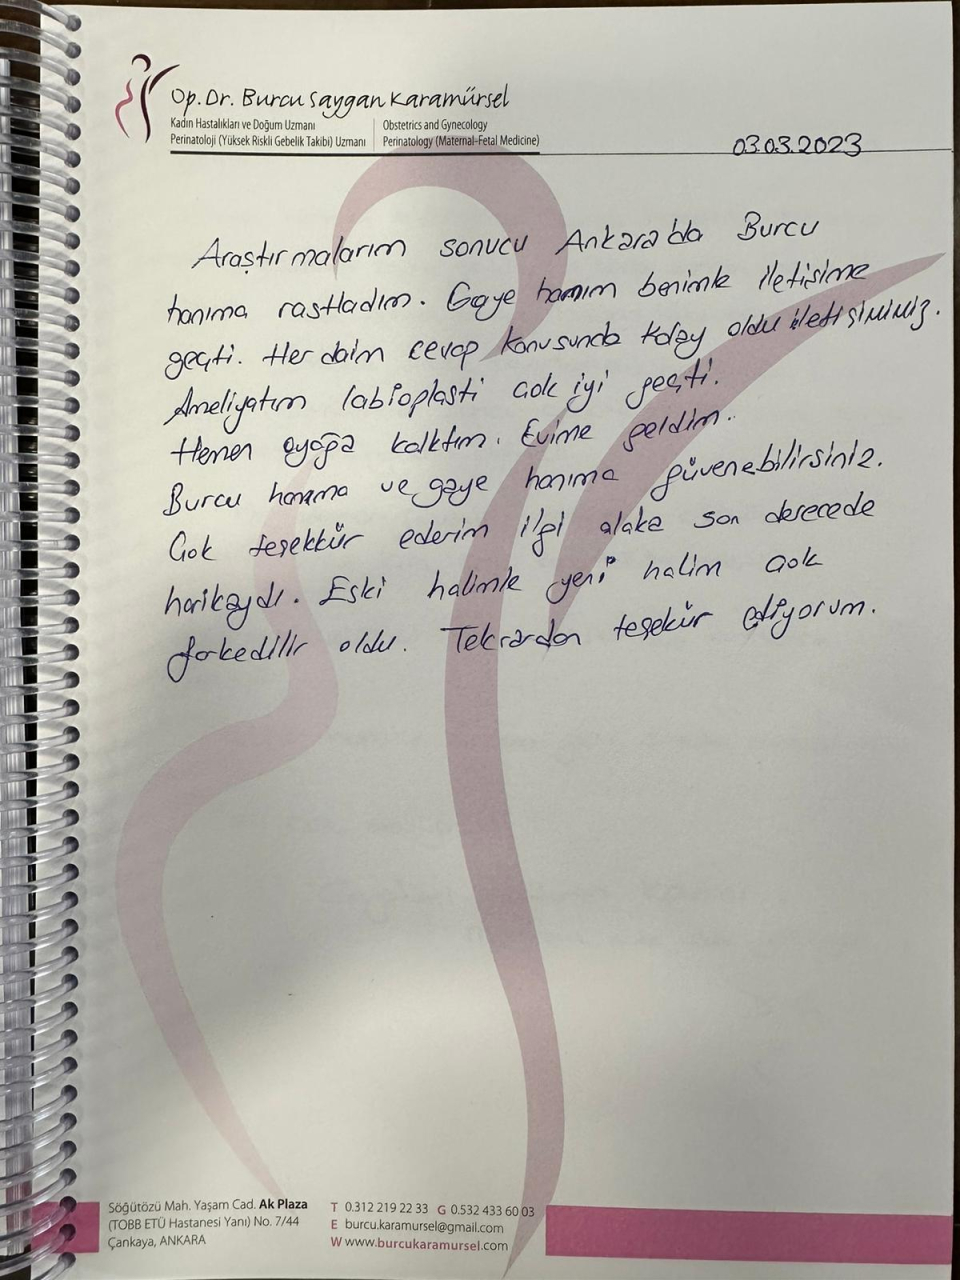 Op. Dr. Burcu Saygan Karamürsel
Kadın Hastalıkları ve Doğum Uzmanı
Perinatoloji (Yüksek Riskli Gebelik Takibi) Uzmanı
Obstetrics and Gynecology
Perinatology (Maternal-Fetal Medicine)
03.03.2023
Araştırmalarım sonucu Ankara'da Burcu
hanıma rastladım. Gaye hanım benimle iletişime
geçti. Her daim cevap konusunda kolay oldu iletişimimiz.
Ameliyatım labioplasti çok iyi geçti.
Hemen ayağa kalktım. Evime geldim..
Burcu hanıma ve gaye hanıma güvenebilirsiniz.
Çok teşekkür ederim ilgi alaka son derecede
harikaydı. Eski halimle yeni halim çok
farkedilir oldu. Tekrardan teşekür ediyorum.
Söğütözü Mah. Yaşam Cad. Ak Plaza
(TOBB ETÜ Hastanesi Yanı) No. 7/44
Çankaya, ANKARA
T 0.312 219 22 33 G 0.532 433 60 03
E burcu.karamursel@gmail.com
W www.burcukaramursel.com